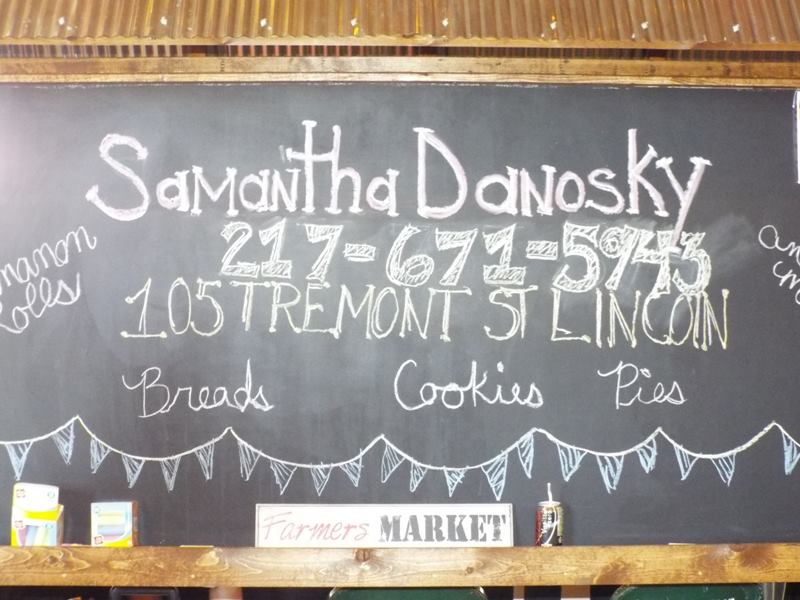 Samantha Danosky
217-671-5943
105 TREMONT ST LINCOlN
nnamon
Rolls
Breads Cookies Pies
Farmers MARKET